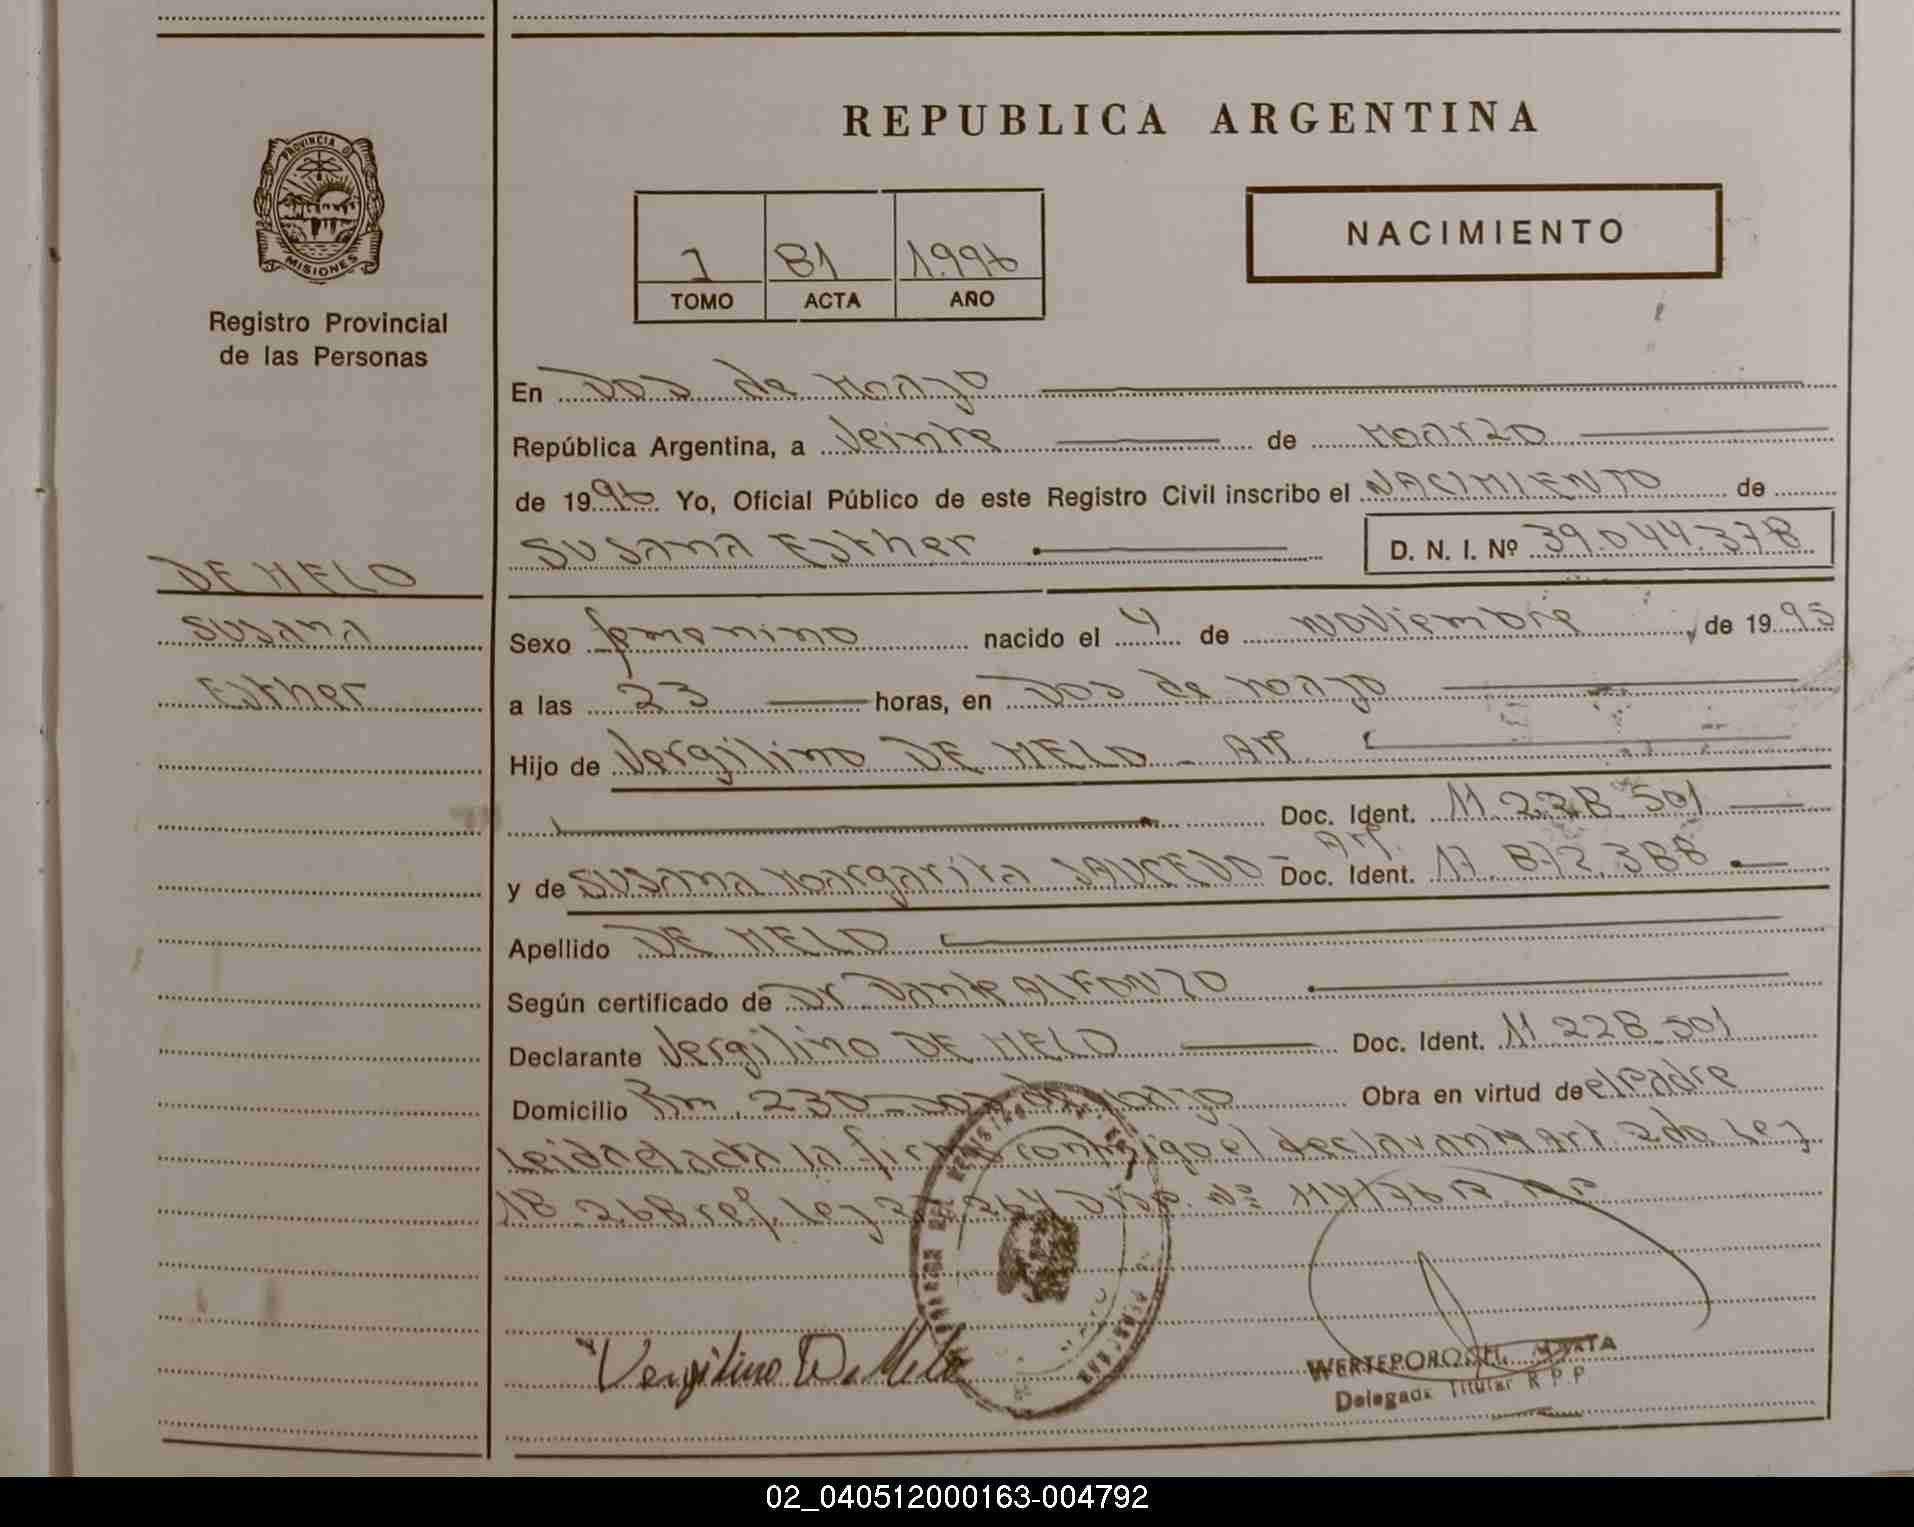 REPUBLICA ARGENTINA
PROVINCIA DE
MISIONES
Registro Provincial
de las Personas
NACIMIENTO
1 81 1.996
TOMO ACTA AÑO
En Dos de Mayo
República Argentina, a Veinte de Marzo
de 1996 Yo, Oficial Público de este Registro Civil inscribo el NACIMIENTO de
SUSANA Esther D. N. I. Nº 39.044.378
DE MELO
SUSANA
Esther
Sexo femenino nacido el 4 de noviembre de 1995
a las 23 horas, en Dos de Mayo
Hijo de Vergilino DE MELO - Ar.
Doc. Ident. 11.228.501
y de SUSANA Margarita SAUCEDO - Ar. Doc. Ident. 17.872.388
Apellido DE MELO
Según certificado de Dr Dante ALFONZO
Declarante Vergilino DE MELO Doc. Ident. 11.228.501
Domicilio Km. 230 - Dos de Mayo Obra en virtud de el Padre
Leida el acta la firma conmigo el declarante Art. 2do Ley
18.268 ref. Ley 22. Disp. Nº 114/76
Vergilino De Melo
MARTA
Delegada Titular R P P
02_040512000163-004792